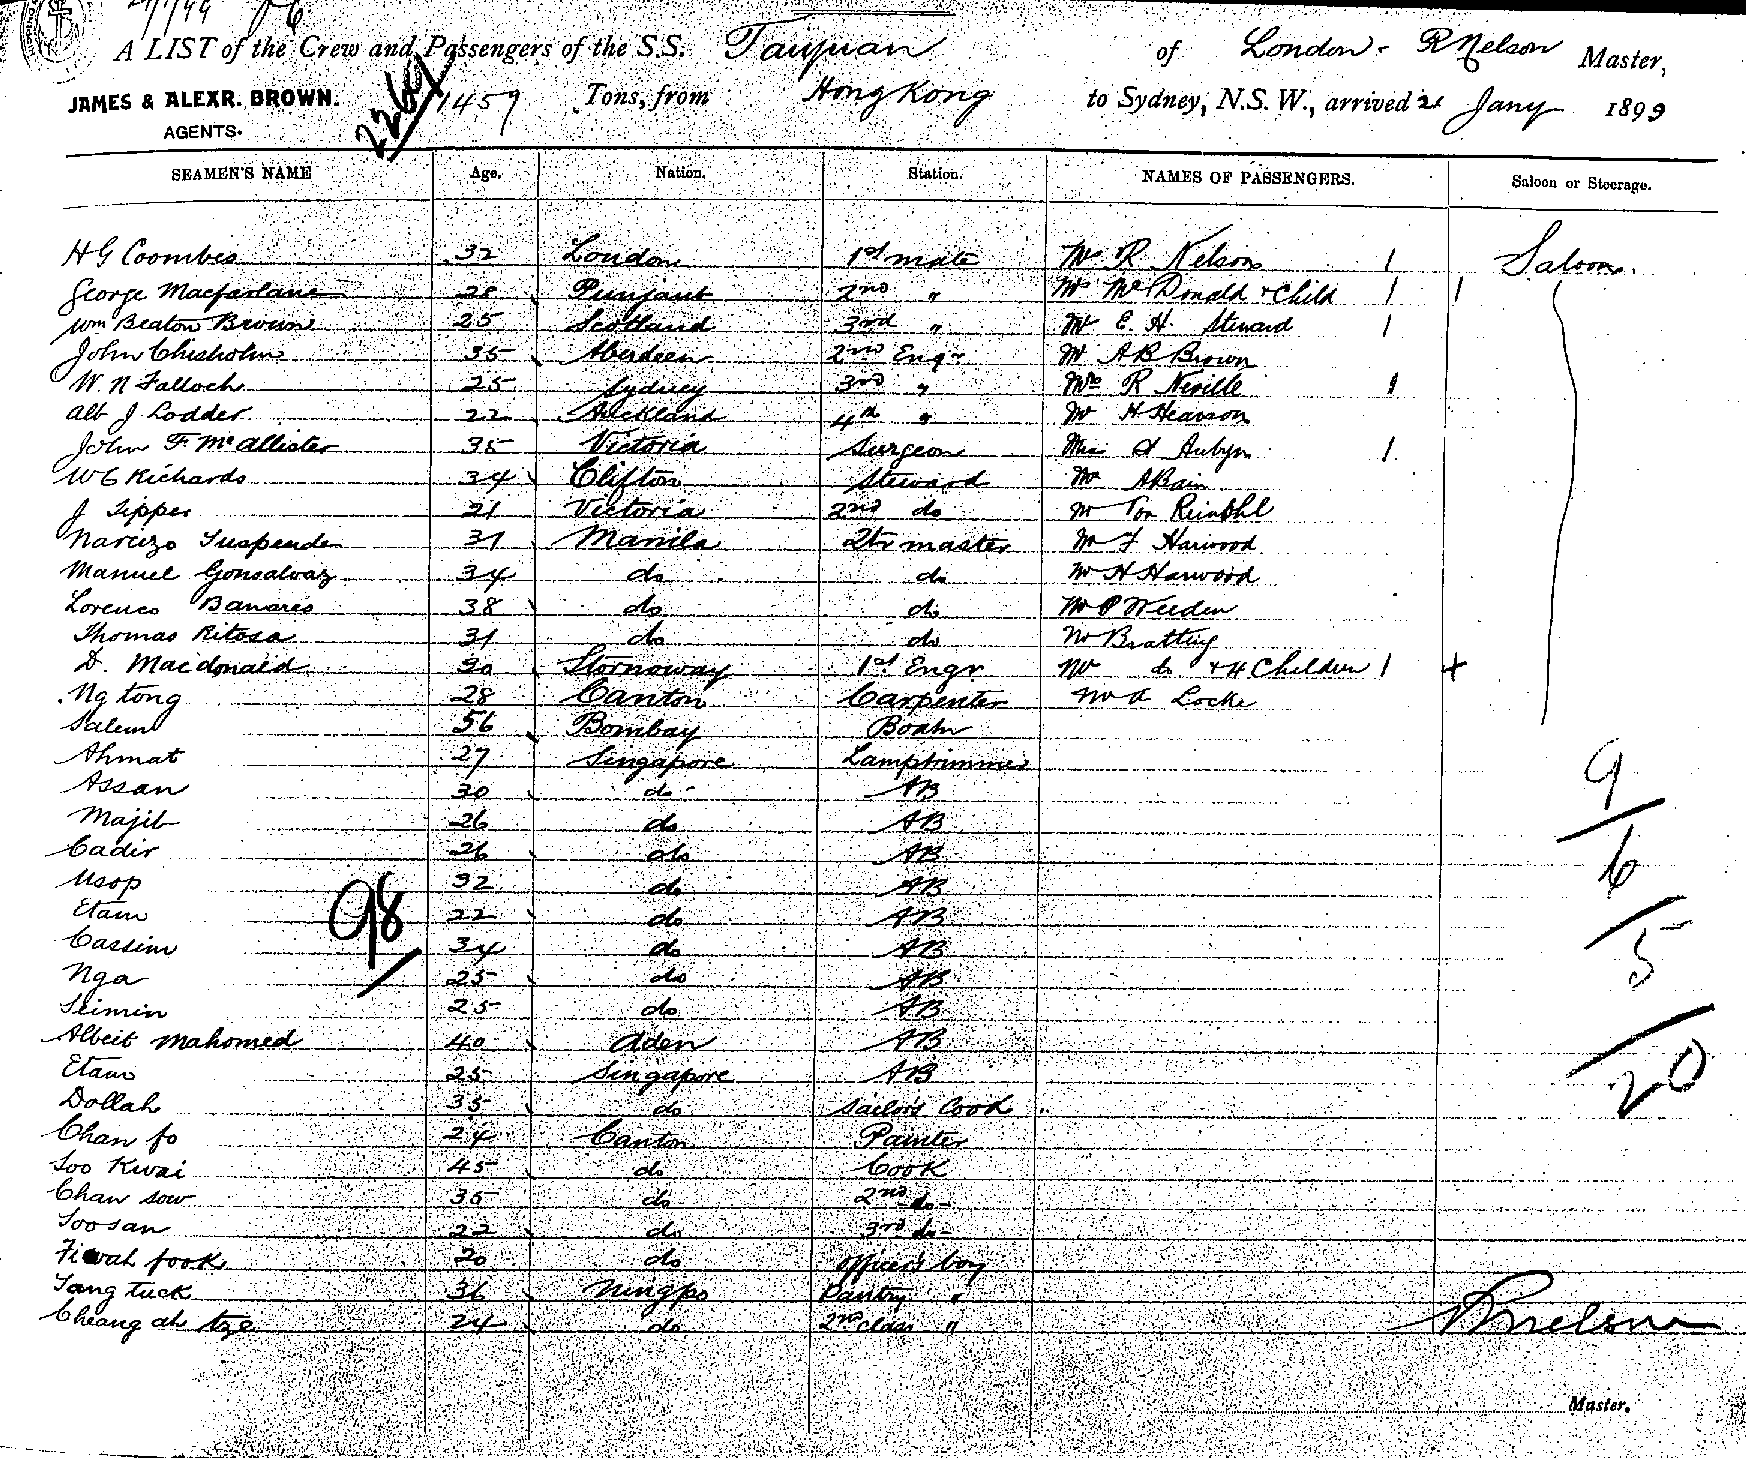 21/1/99 P6
A LIST of the Crew and Passengers of the S.S. Taiyuan of London - R Nelson Master,
JAMES & ALEXR. BROWN. 2264 1459 Tons, from Hong Kong to Sydney, N.S.W., arrived 21 Jany 1899
AGENTS.
SEAMEN'S NAME Age. Nation. Station. NAMES OF PASSENGERS. Saloon or Steerage.
H G Coombes 32 London 1st mate Mrs R Nelson 1 Saloon.
George Macfarlane 28 Punjaub 2nd " Mrs McDonald & Child 1 1
Wm Beaton Brown 25 Scotland 3rd " Mr E. H. Steward 1
John Chisholm 35 Aberdeen 2nd Engr Mr A B Brown
W. N Falloch 25 Sydney 3rd " Mrs R Neville 1
Alb J Lodder 22 Auckland 4th " Mr H Hearson
John F McAllister 35 Victoria Surgeon Miss St Aubyn 1
W C Richards 34 Clifton Steward Mr A Bain
J Tipper 21 Victoria 2nd do Mr Von
Narcizo Suspende 31 Manila Qtr master Mr F Harwood
Manuel Gonsalvaz 34 do do Mr H Harwood
Lorenco Banares 38 do do Mr P Weeden
Thomas Ritosa 31 do do Mr Bratting
D. Macdonald 30 Stornoway 1st Engr do & 4 Children 1 4
Ng tong 28 Canton Carpenter Mr A Locke
Salem 56 Bombay Boatn
Ahmat 27 Singapore Lamptrimmer 9
Assan 30 do AB
Majib 26 do AB
Cadir 26 do AB 6
Usop 32 do AB
Etam 98 22 do AB
Cassim 34 do AB 5
Nga 25 do AB
Seimin 25 do AB
Albeit Mahomed 40 Aden AB
Etam 25 Singapore AB 20
Dollah 35 do Sailor's Cook
Chan fo 24 Canton Painter
Soo Kwai 45 do Cook
Chan sow 35 do 2nd do
Soo san 22 do 3rd do
fook 20 do Officer's boy
Tang tuck 36 Ningpo Pantry "
Cheang ah tze 24 do 2nd class " R Nelson
Master.